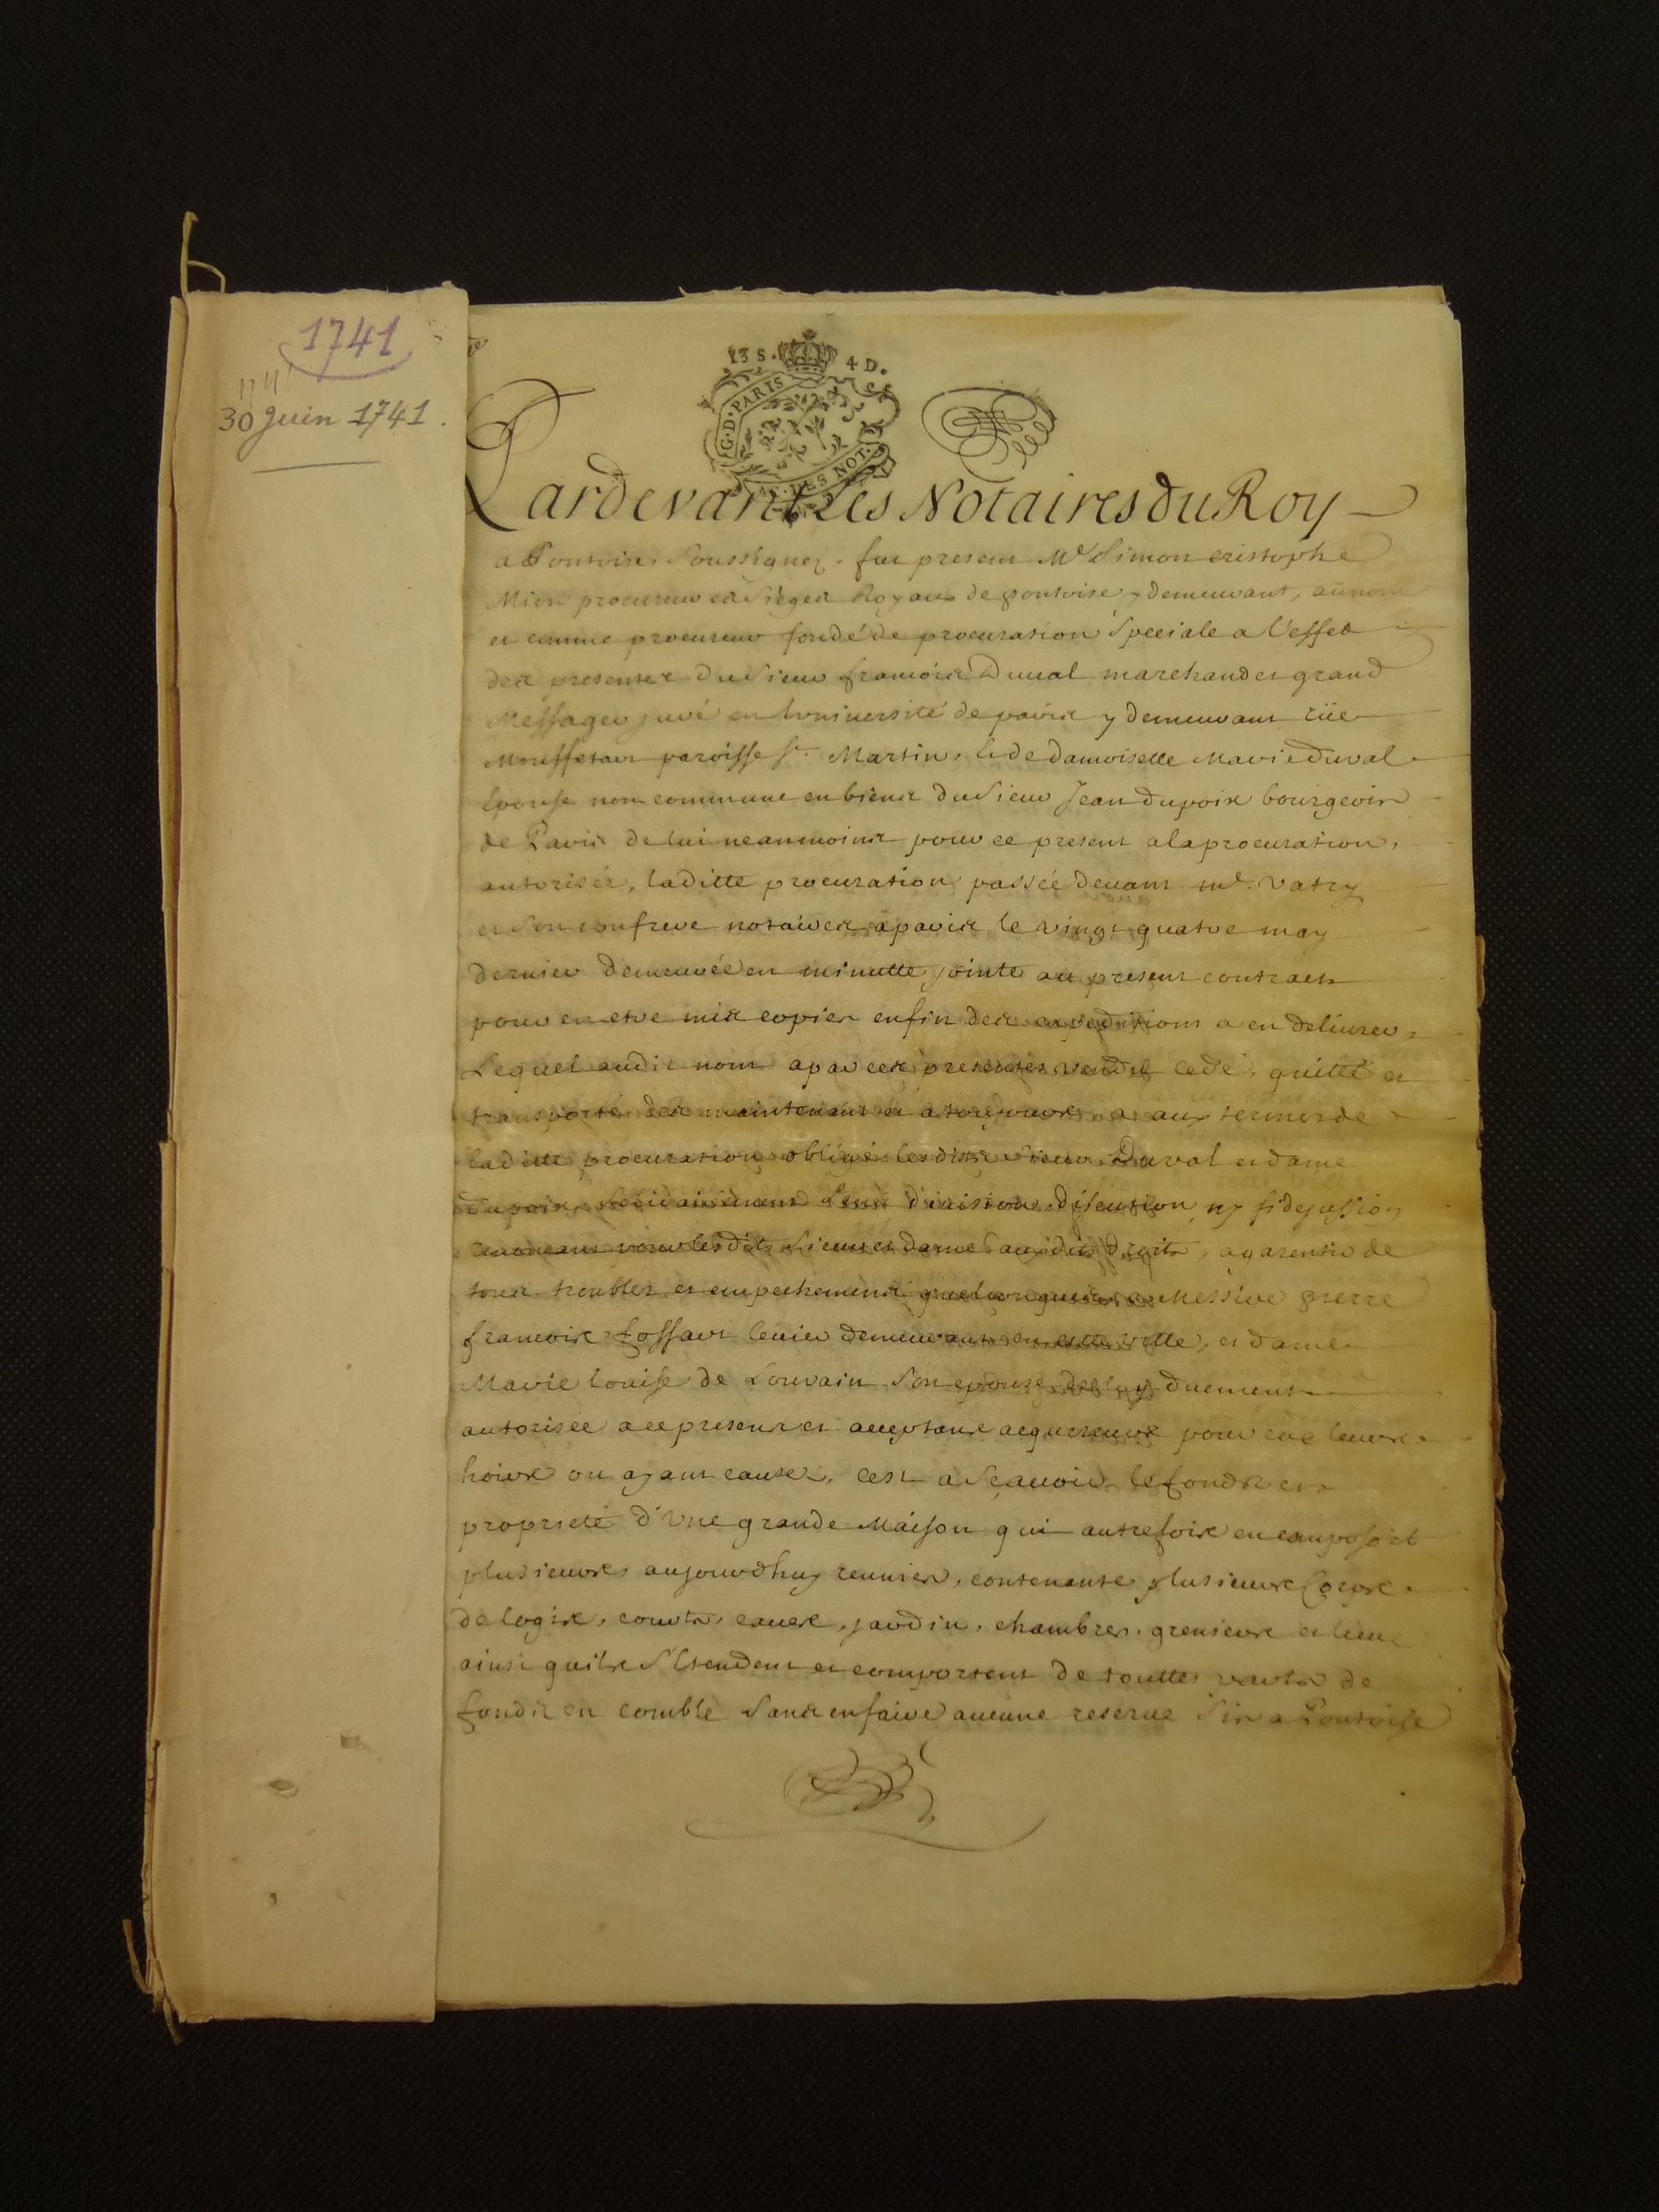 1741
30 Juin 1741.
13 S. 4 D.
G. D. PARIS
DES NOT.
Pardevant Les Notaires du Roy
a Pontoise Soussignez. fut present Me Simon cristophe
procureur es Sieges Royaux de pontoise y demeurant, au nom
et comme procureur fondé de procuration Speciale a l'effet
des presentes du Sieur francois Duval marchand et grand
Messager juré en luniversité de paris y demeurant rüe
Mouffetart paroisse St. Martin, et de damoiselle Marie Duval
epouse non commune en biens du Sieur Jean Dupoix bourgeois
de Paris de lui neanmoins pour ce present a la procuration,
autorisée, laditte procuration passée devant me. Vatry
et Son confrere notaires a paris le vingt quatre may
dernier demeurée en minutte jointe au present contract
pour en etre mis copies enfin des expeditions a en delivrer,
Lequel audit nom a par ces presentes vendu cedé, quitté et
transporté des maintenant et a toujours a aux termes de
laditte procuration obligé lesdits Sieur Duval et dame
Dupoix Solidairement Sans division discution ny fidejussion
pour lesdits Sieur et dame audits droits, a garentir de
tous troubles et empechements quelconques a Messire pierre
francois demeurant en cette ville, et dame
Marie louise de Louvain Son epouse de luy duement
autorisée a ce present et acceptans acquereurs pour eux leurs
hoirs ou ayant cause, cest a Sçavoir le fonds et
proprieté d'Une grande Maison qui autrefois en composoit
plusieurs aujourdhuy reunies, contenante plusieurs Corps
de logis, court, caves, jardin, chambres, greniers et lieux
ainsi quils S'Etendent et comportent de touttes parts de
fonds en comble Sans en faire aucune reserve Sis a Pontoise